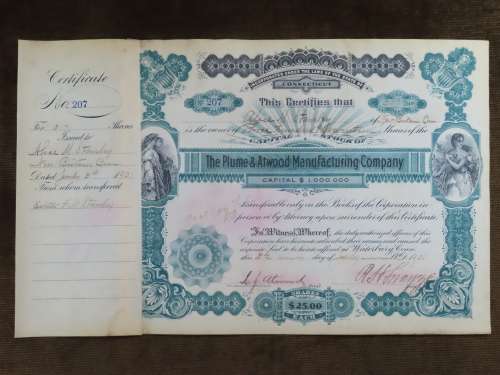 Certificate
No. 207
For Shares
Issued to
New Britain Conn
Dated
From whom transferred
INCORPORATED UNDER THE LAWS OF THE STATE OF
CONNECTICUT
207
This Certifies that
of New Britain Conn
is the owner of Shares of the
CAPITAL STOCK OF
The Plume & Atwood Manufacturing Company
CAPITAL $ 1,000,000
transferable only on the Books of the Corporation in
person or by Attorney upon surrender of this Certificate.
In Witness Whereof, the duly authorized officers of this
Corporation have hereunto subscribed their names and caused the
corporate Seal to be hereto affixed at Waterbury Conn.
this day of
SHARES
$25.00
EACH